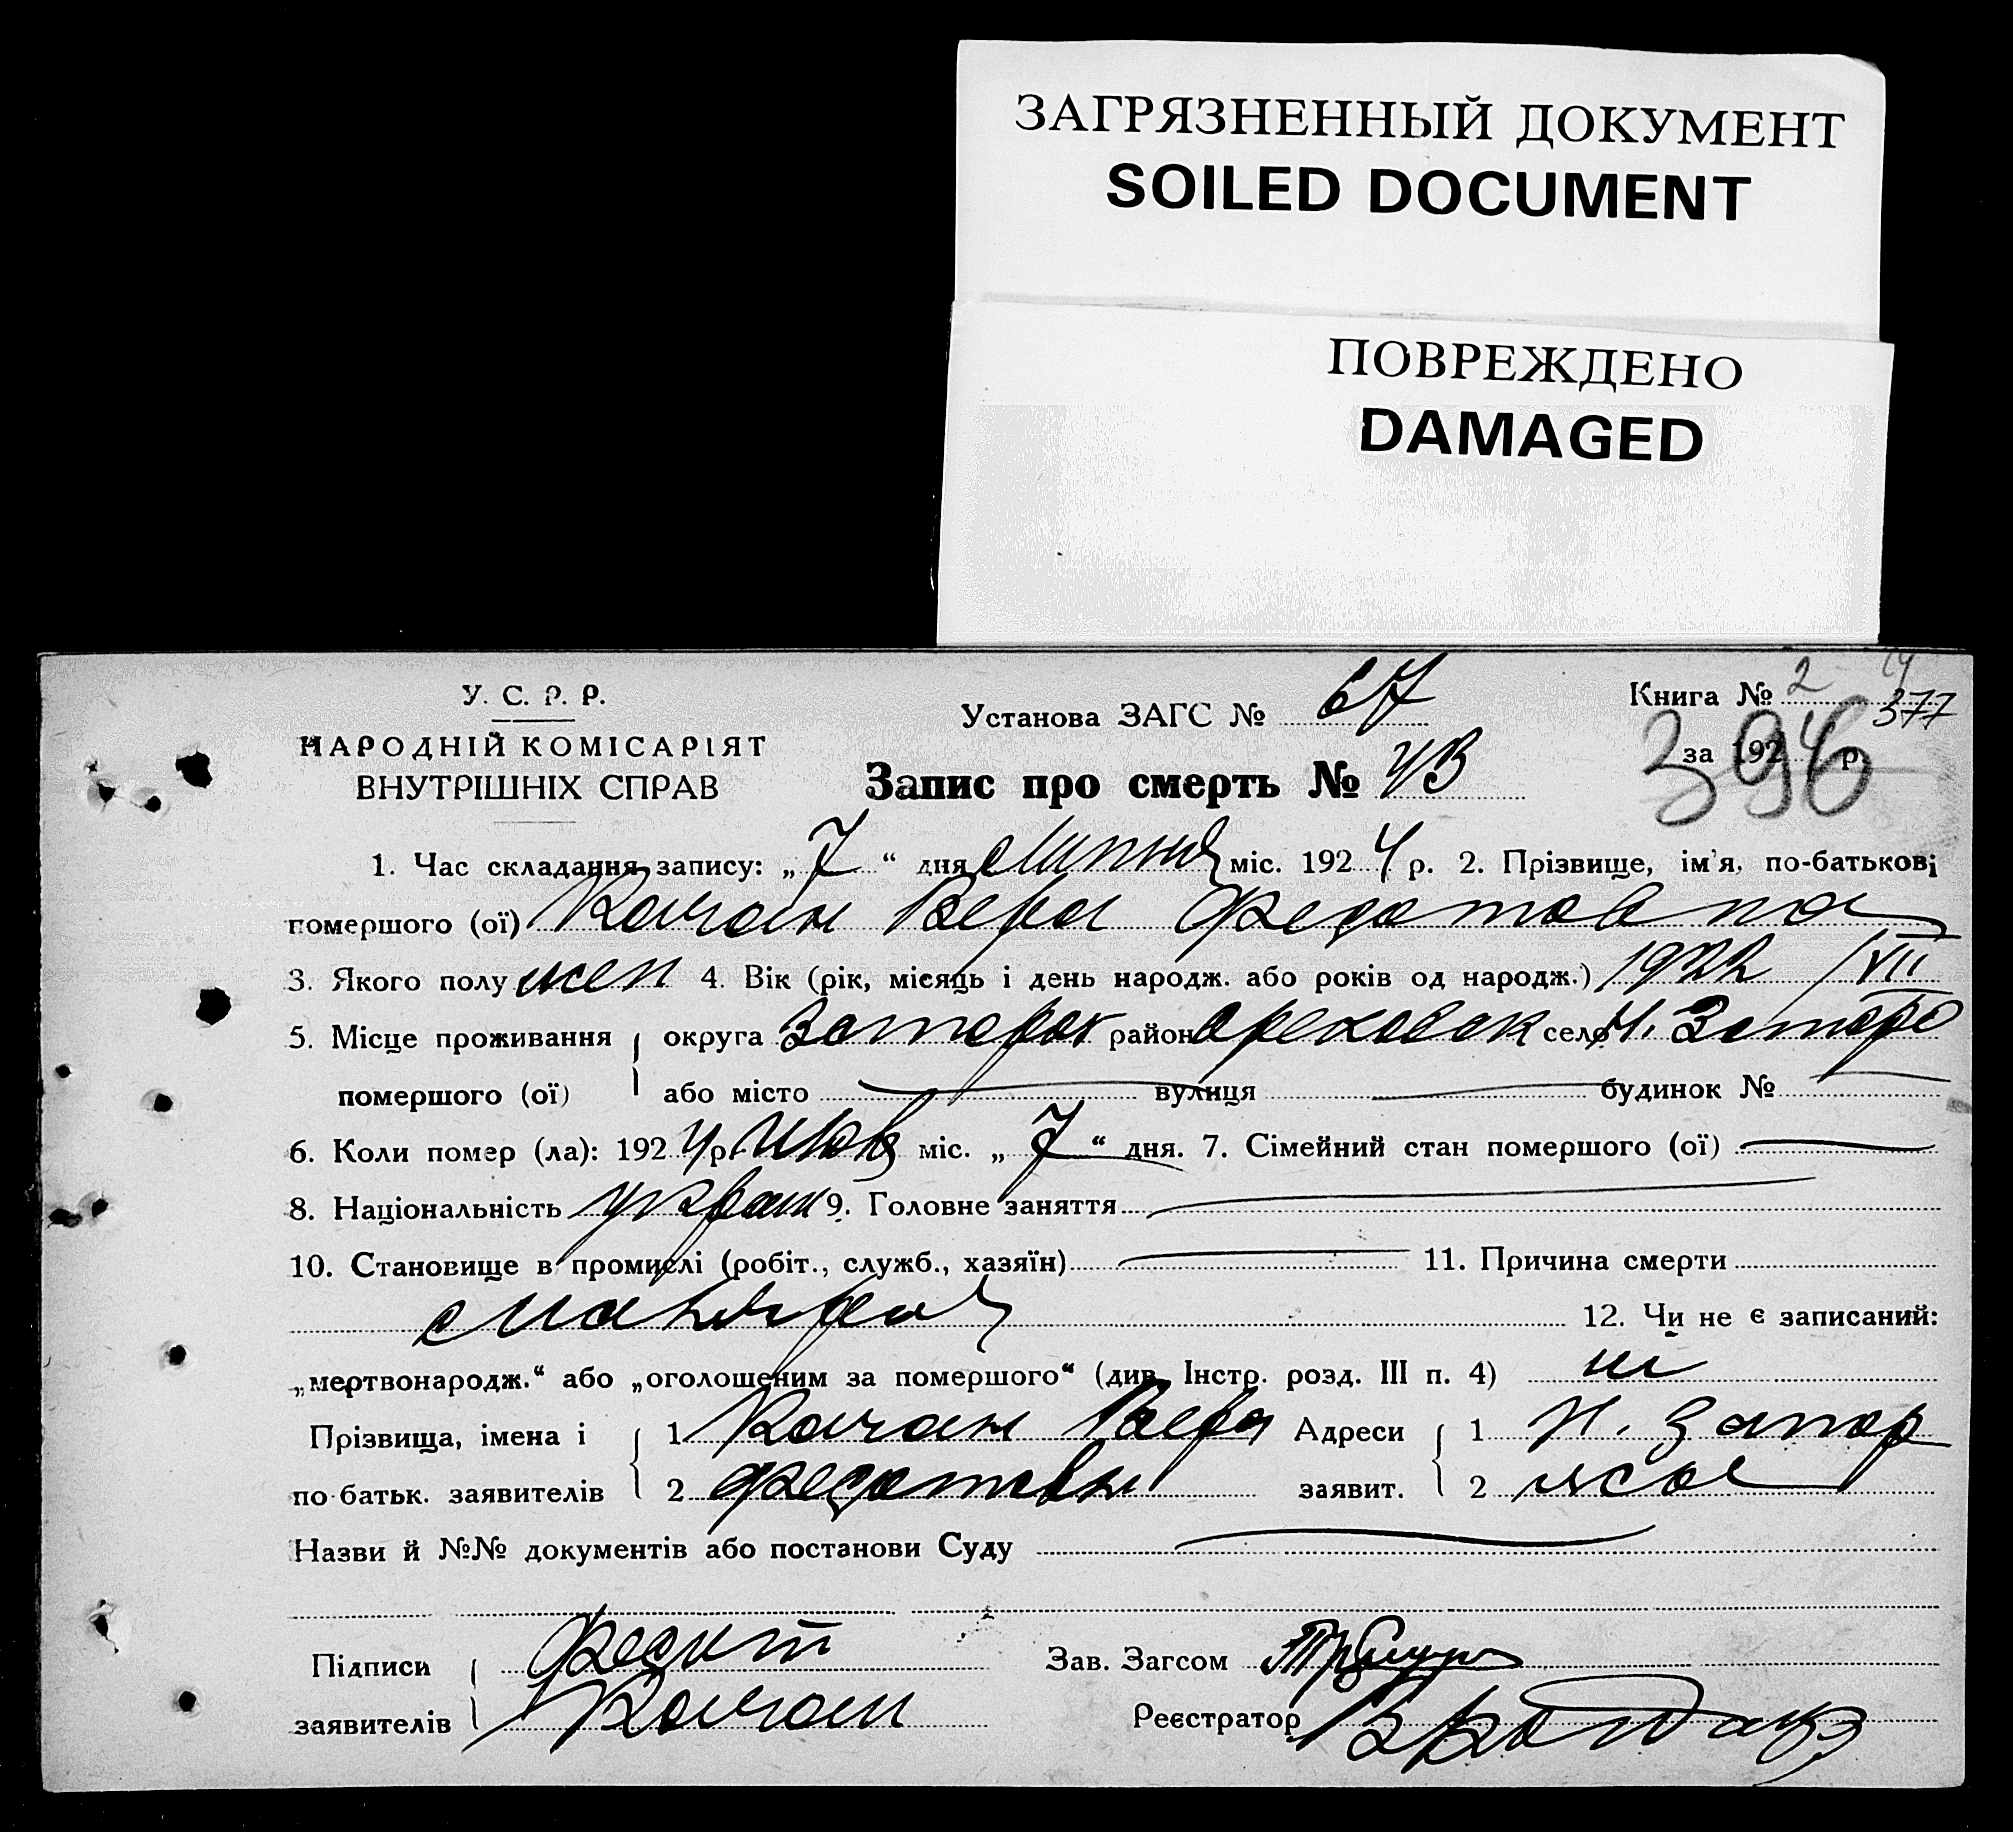 ЗАГРЯЗНЕННЫЙ ДОКУМЕНТ
SOILED DOCUMENT
ПОВРЕЖДЕНО
DAMAGED
У. С. Р. Р.
НАРОДНІЙ КОМІСАРІЯТ
ВНУТРІШНІХ СПРАВ
Установа ЗАГС № 67
Книга № 2
377
за 1924 р.
396
Запис про смерть № 43
1. Час складання запису: „7“ дня Липня міс. 1924 р. 2. Прізвище, ім'я, по-батькові
помершого (ої) Качан Вера Федотовна
3. Якого полу жен 4. Вік (рік, місяць і день народж. або років од народж.) 1922 /VII
5. Місце проживання округа Запорож район Ореховск село Н. Запоро
помершого (ої) або місто вулиця будинок №
6. Коли помер (ла): 1924 р. міс. „7“ дня. 7. Сімейний стан помершого (ої)
8. Національність украин 9. Головне заняття
10. Становище в промислі (робіт., служб., хазяїн) 11. Причина смерти
12. Чи не є записаний:
„мертвонародж.“ або „оголошеним за помершого“ (див. Інстр. розд. III п. 4) ні
Прізвища, імена і 1 Качан Вера Адреси 1 Н. Запор
по батьк. заявителів 2 заявит. 2
Назви й №№ документів або постанови Суду
Підписи Зав. Загсом
заявителів Качан Реєстратор